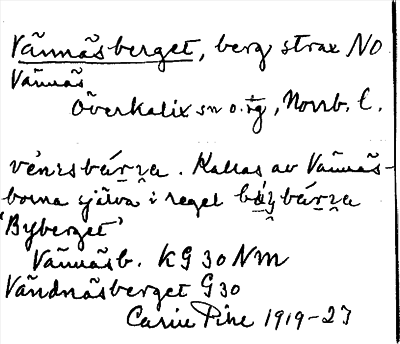 Vännäsberget, berg strax NO
Vännäs
Överkalix sn o. tg, Norrb. l.
Kallas av Vännäs-
borna själva i regel
'Byberget'
Vännäsb. KG 30 NM
Vändnäsberget G30
Carin Pihl 1919-27